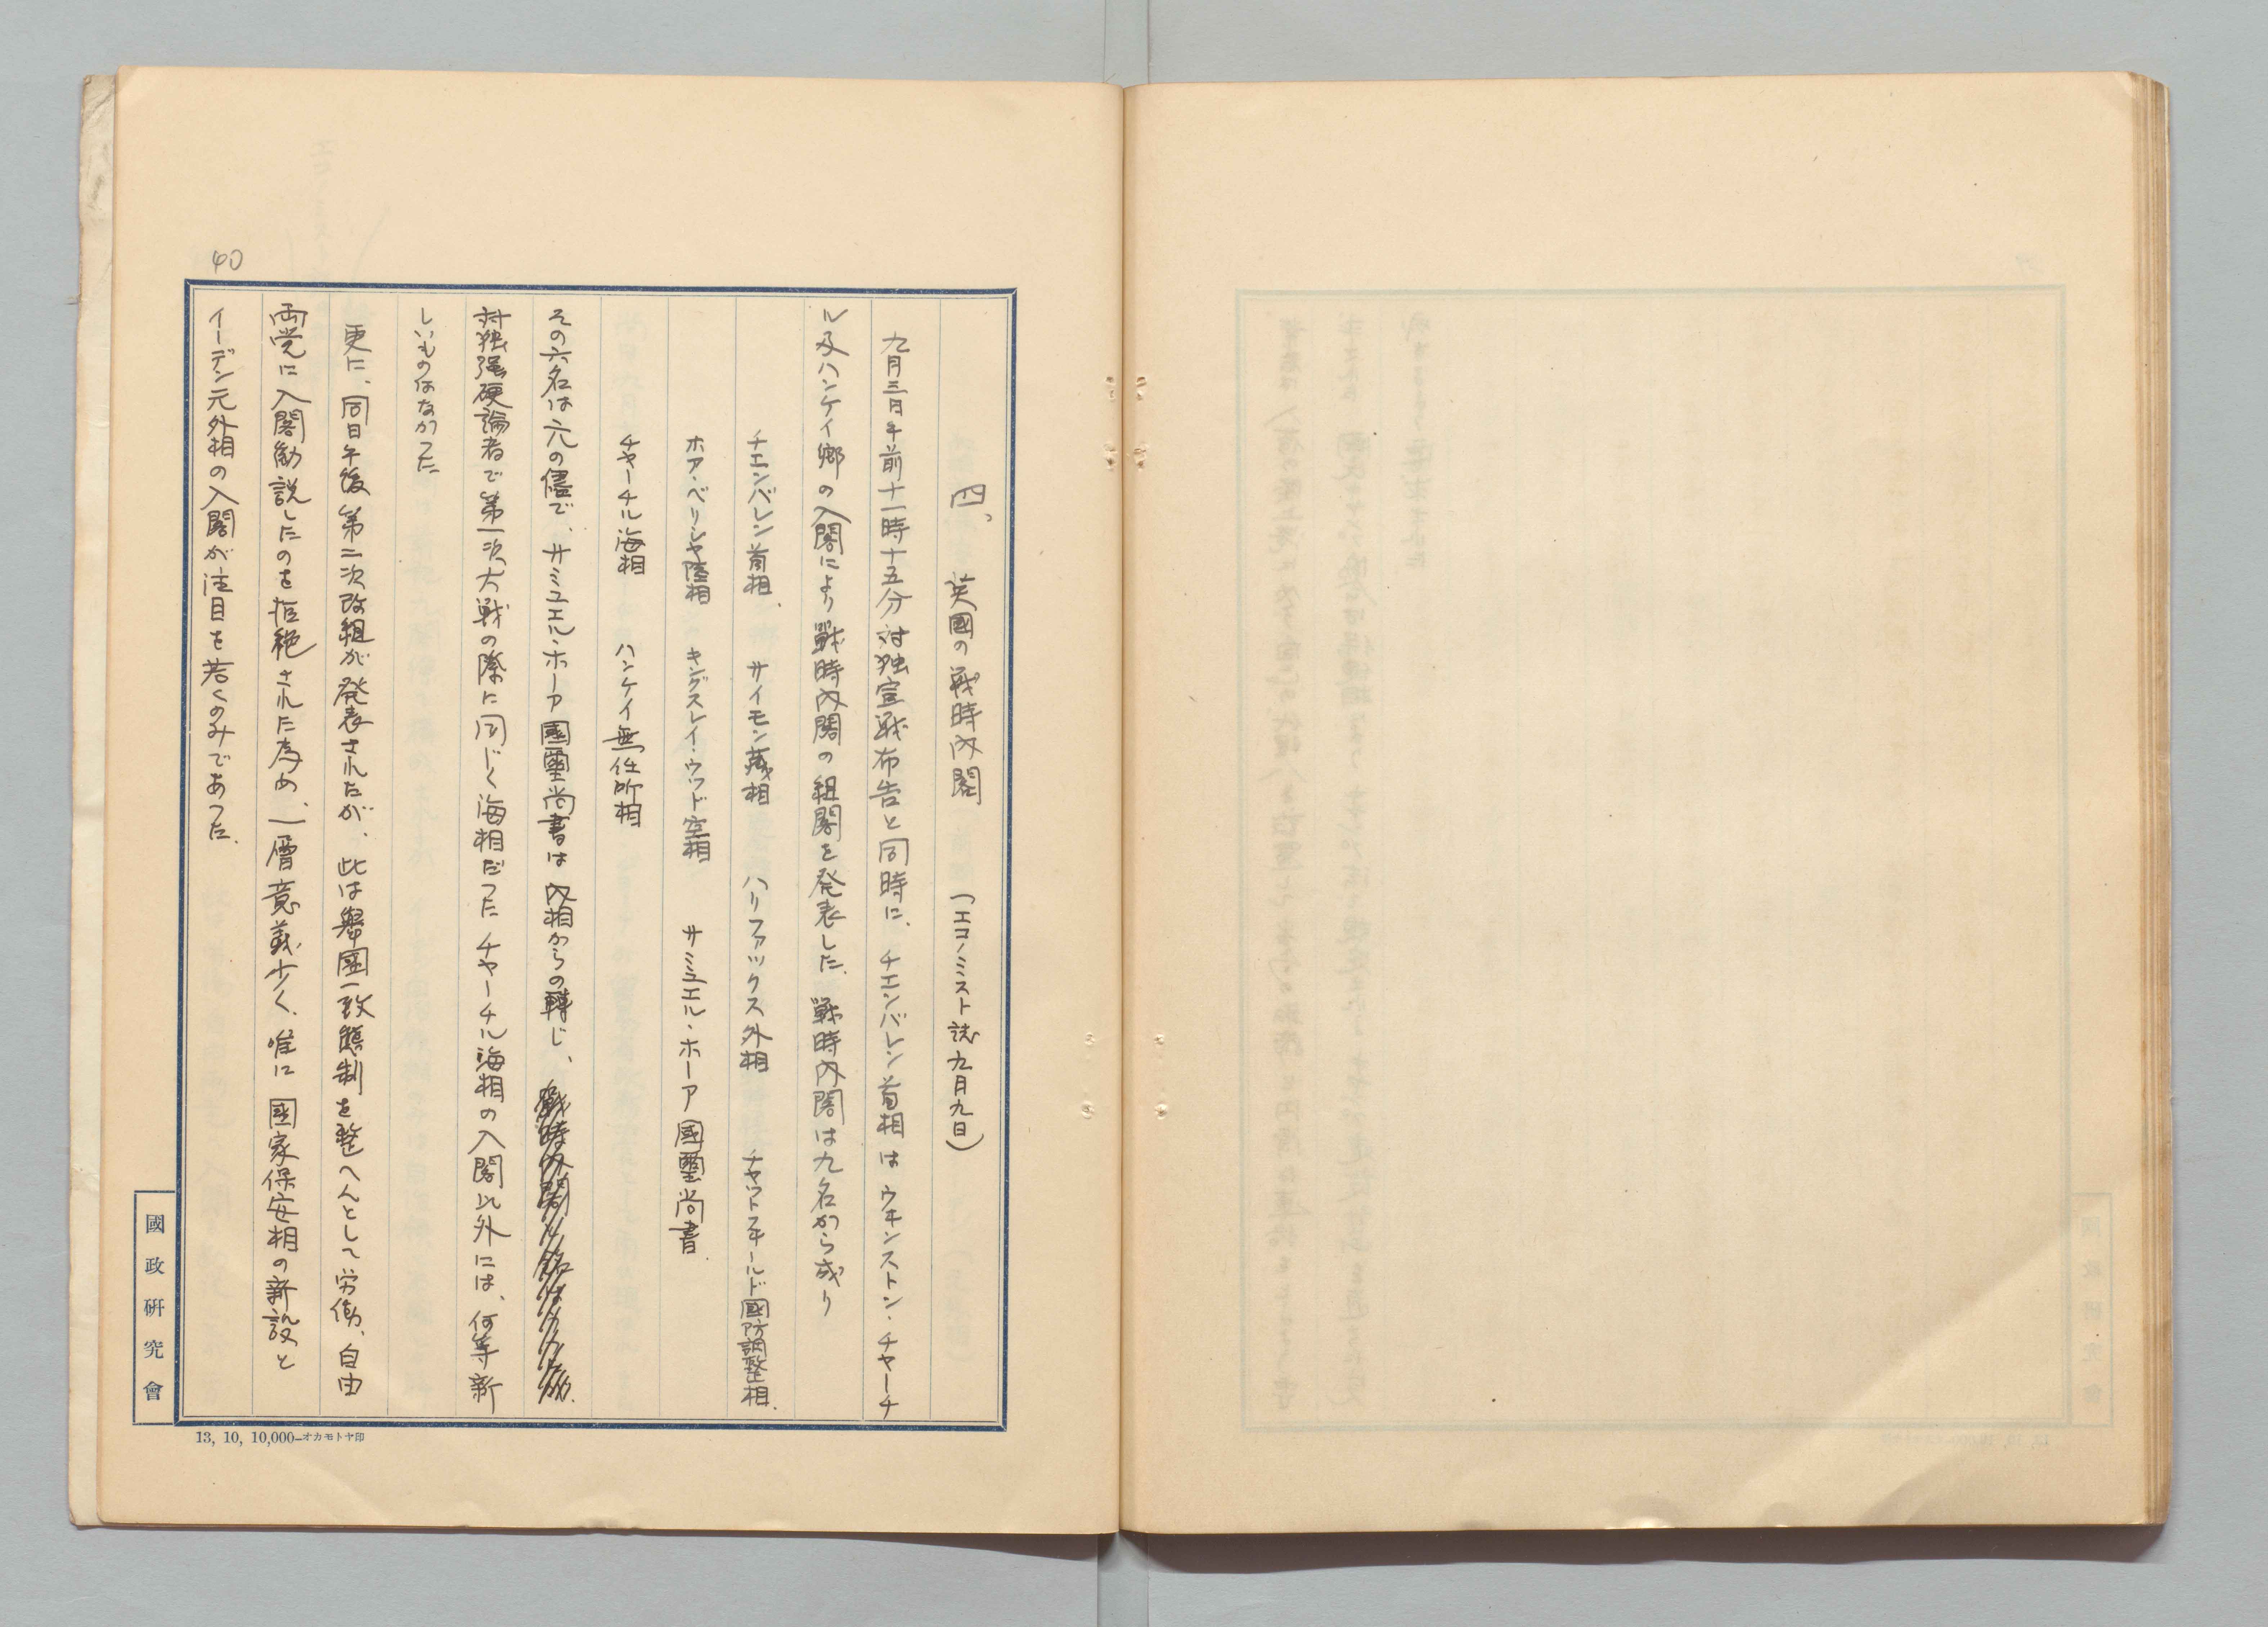 四、　英國の戦時内閣　（エコノミスト誌九月九日）
九月三日午前十一時十五分対独宣戦布告と同時に、チエンバレン首相はウヰンストン・チャーチ
ル及ハンケイ郷の入閣により戦時内閣の組閣を発表した、戦時内閣は九名から成り
チエンバレン首相、　サイモン蔵相　ハリファックス外相　チャットフヰールド國防調整相、
ホア・ベリシヤ陸相　キングスレイ・ウッド空相　サミユエル・ホーア國璽尚書
チャーチル海相　ハンケイ無任所相
その六名は元の儘で、サミユエル・ホーア國璽尚書は内相からの轉じ、
対独强硬論者で第一次大戦の際に同じく海相だつたチャーチル海相の入閣此外には、何等新
しいものはなかつた
更に、同日午後第二次改組が発表されたが、此は擧國一致態制を整へんとして労働、自由
両党に入閣勧説したのを拒絶された為め、一層意義少く、唯に國家保安相の新設と
イーデン元外相の入閣が注目を若くのみであつた、
40
國政研究會
13, 10, 10,000—オカモトヤ印